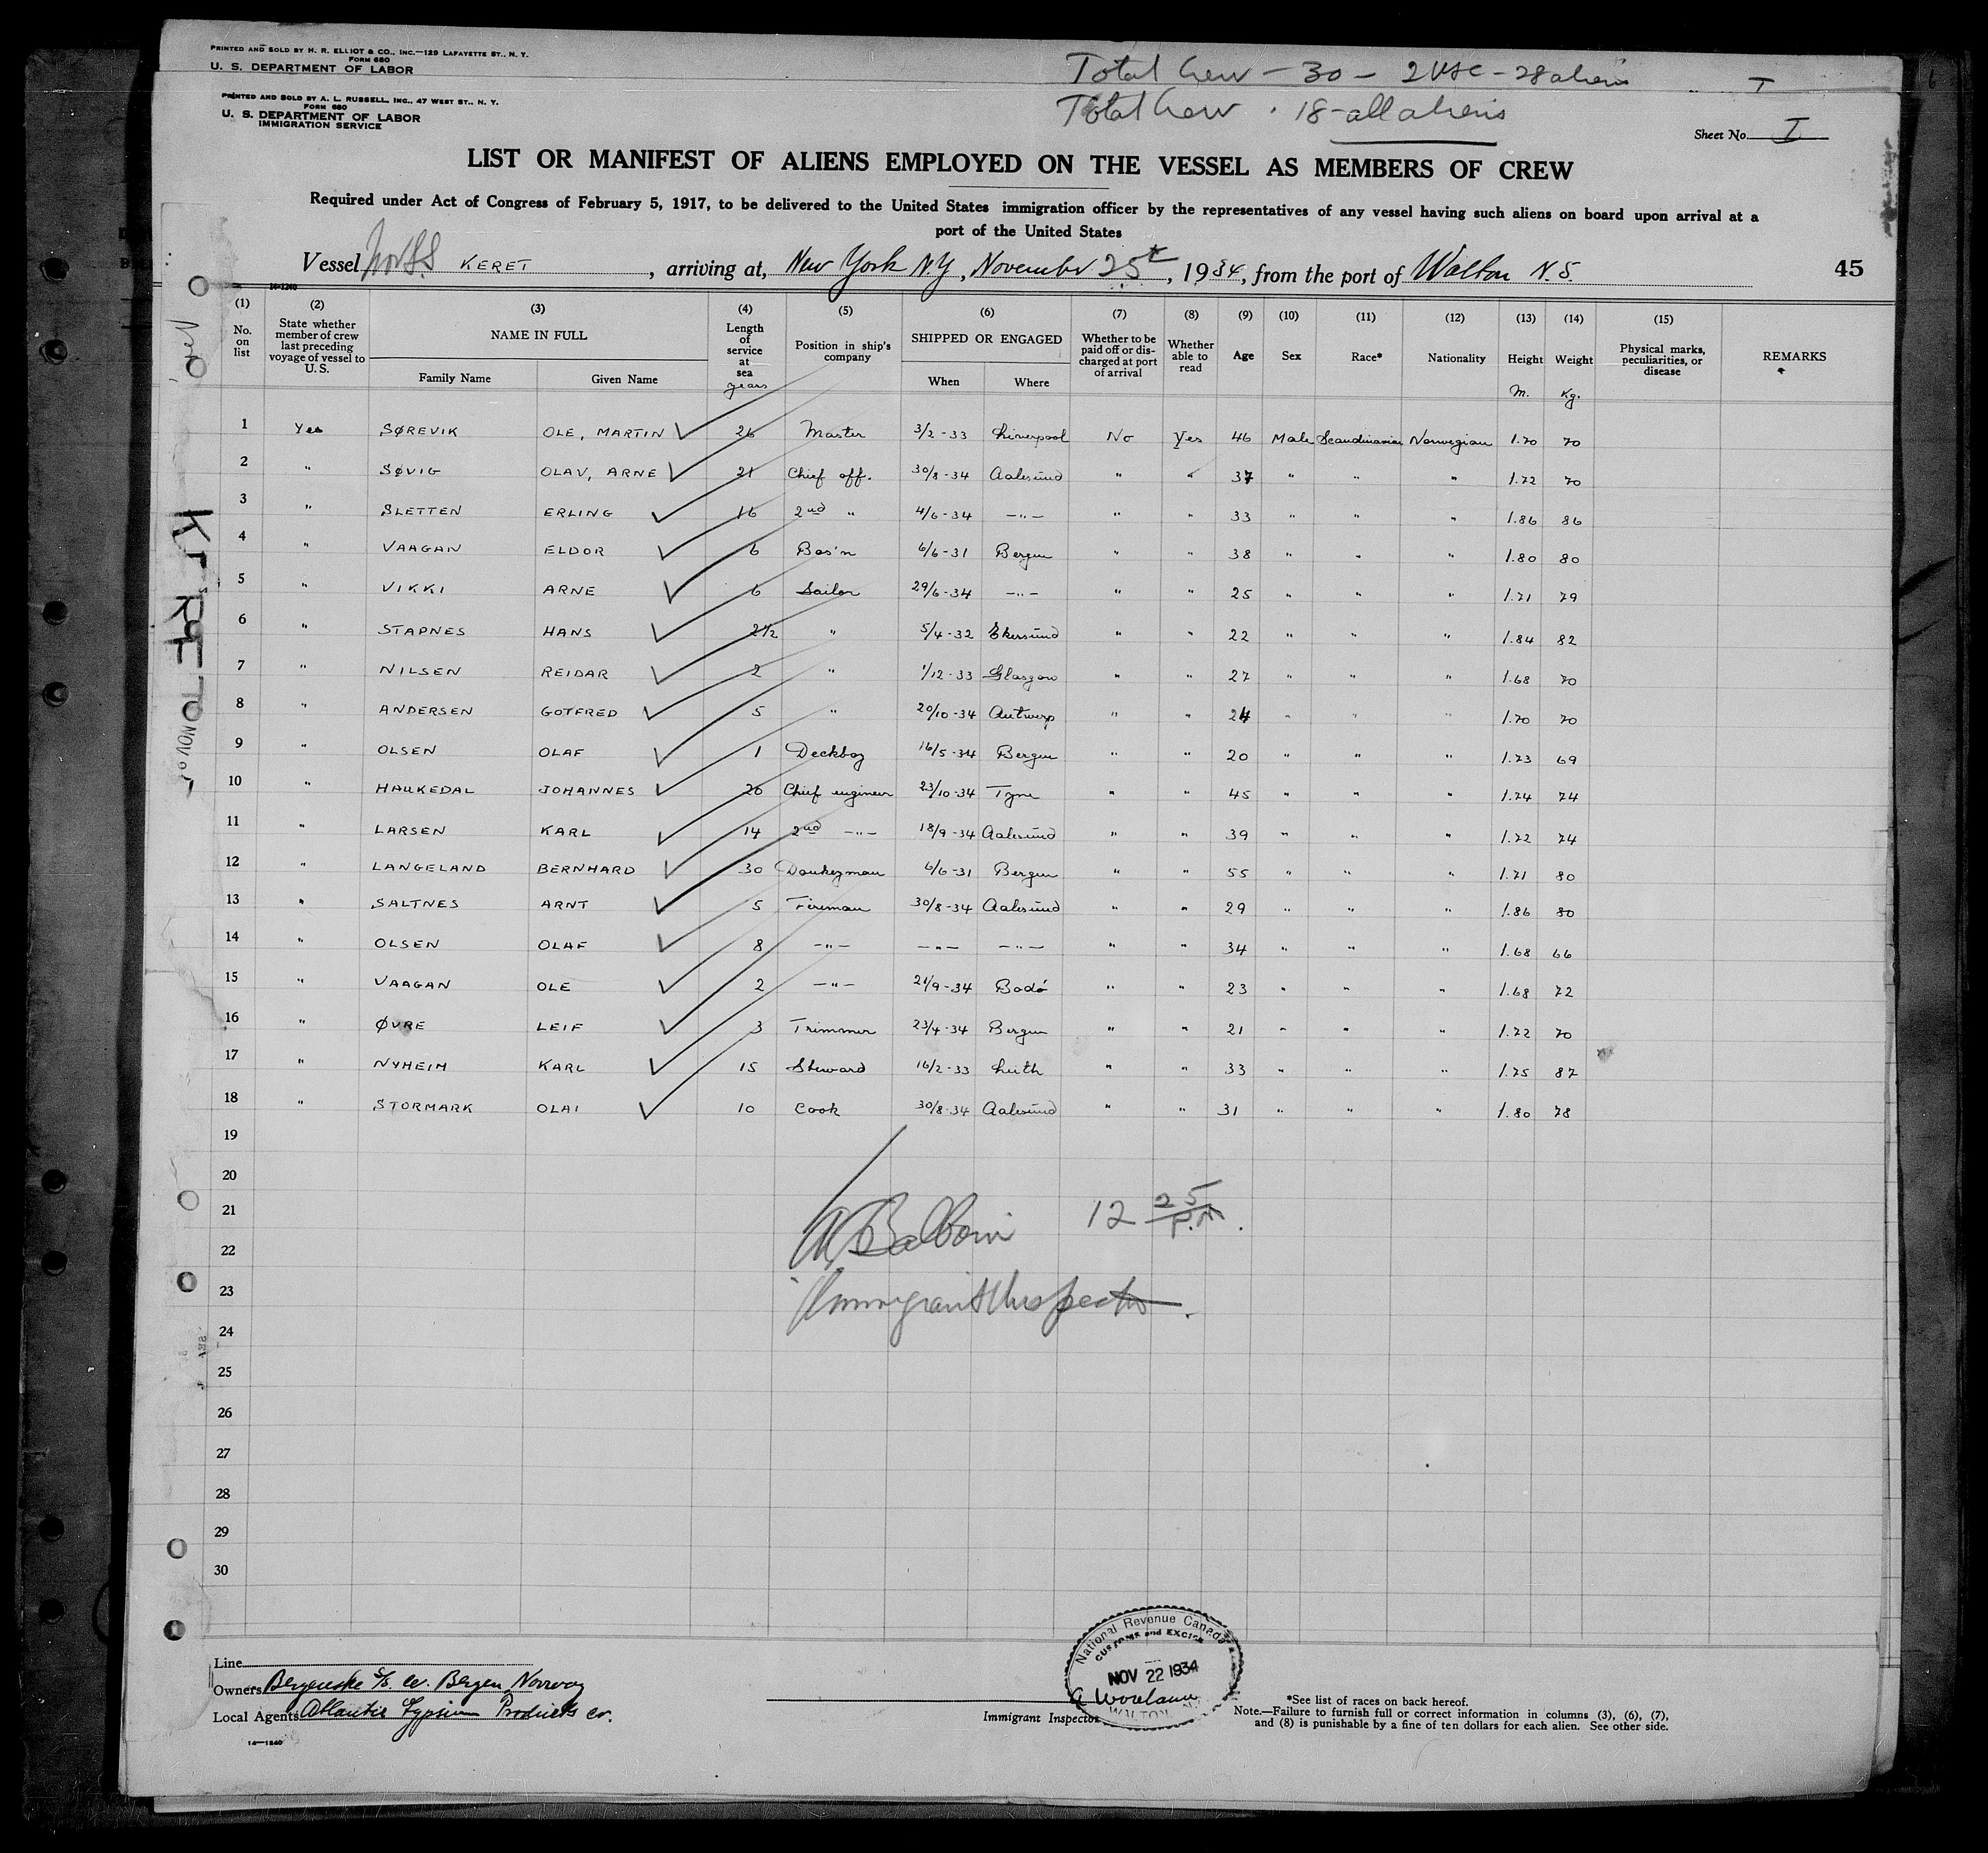 PRINTED AND SOLD BY H. R. ELLIOT & CO., INC.—129 LAFAYETTE ST., N. Y.
FORM 680
U. S. DEPARTMENT OF LABOR
Total Crew - 30 - 2 USC - 28 aliens
I
PRINTED AND SOLD BY A. L. RUSSELL, INC., 47 WEST ST., N. Y.
FORM 680
U. S. DEPARTMENT OF LABOR
IMMIGRATION SERVICE
Total Crew . 18 - all aliens
Sheet No. I
LIST OR MANIFEST OF ALIENS EMPLOYED ON THE VESSEL AS MEMBERS OF CREW
Required under Act of Congress of February 5, 1917, to be delivered to the United States immigration officer by the representatives of any vessel having such aliens on board upon arrival at a
port of the United States
Vessel Nor SS KERET, arriving at, New York N.Y., November 25th, 1934, from the port of Walton N.S.
45
(1) No. on list (2) State whether member of crew last preceding voyage of vessel to U.S. (3) NAME IN FULL Family Name Given Name (4) Length of service at sea years (5) Position in ship's company (6) SHIPPED OR ENGAGED When Where (7) Whether to be paid off or discharged at port of arrival (8) Whether able to read (9) Age (10) Sex (11) Race* (12) Nationality (13) Height M. (14) Weight Kg. (15) Physical marks, peculiarities, or disease REMARKS
1 Yes SØREVIK OLE, MARTIN 26 Master 3/2-33 Liverpool No Yes 46 Male Scandinavian Norwegian 1.70 70
2 " SØVIG OLAV, ARNE 21 Chief off. 30/8-34 Aalesund " " 37 " " " 1.72 70
3 " SLETTEN ERLING 16 2nd " 4/6-34 -"- " " 33 " " " 1.86 86
4 " VAAGAN ELDOR 6 Bos'n 6/6-31 Bergen " " 38 " " " 1.80 80
5 " VIKKI ARNE 6 Sailor 29/6-34 -"- " " 25 " " " 1.71 79
6 " STAPNES HANS 2 1/2 " 5/4-32 Ekersund " " 22 " " " 1.84 82
7 " NILSEN REIDAR 2 " 1/12-33 Glasgow " " 27 " " " 1.68 70
8 " ANDERSEN GOTFRED 5 " 20/10-34 Antwerp " " 24 " " " 1.70 70
9 " OLSEN OLAF 1 Deckboy 16/5-34 Bergen " " 20 " " " 1.73 69
10 " HAUKEDAL JOHANNES 20 Chief engineer 23/10-34 Tyne " " 45 " " " 1.74 74
11 " LARSEN KARL 14 2nd -"- 18/9-34 Aalesund " " 39 " " " 1.72 74
12 " LANGELAND BERNHARD 30 Donkeyman 6/6-31 Bergen " " 55 " " " 1.71 80
13 " SALTNES ARNT 5 Fireman 30/8-34 Aalesund " " 29 " " " 1.86 80
14 " OLSEN OLAF 8 -"- -"- -"- " " 34 " " " 1.68 66
15 " VAAGAN OLE 2 -"- 21/9-34 Bodó " " 23 " " " 1.68 72
16 " ØVRE LEIF 3 Trimmer 23/4-34 Bergen " " 21 " " " 1.72 70
17 " NYHEIM KARL 15 Steward 16/2-33 Leith " " 33 " " " 1.75 87
18 " STORMARK OLAI 10 Cook 30/8-34 Aalesund " " 31 " " " 1.80 78
19
20
21
22
23
24
25
26
27
28
29
30
12 25 P.M.
Immigrant Inspector.
Line
Owners Bergenske S/S. Co. Bergen, Norway
Local Agents Atlantic Gypsum Products Co.
14—1240
National Revenue Canada
CUSTOMS and EXCISE
NOV 22 1934
WALTON
Immigrant Inspector
*See list of races on back hereof.
Note.—Failure to furnish full or correct information in columns (3), (6), (7),
and (8) is punishable by a fine of ten dollars for each alien. See other side.
KERET